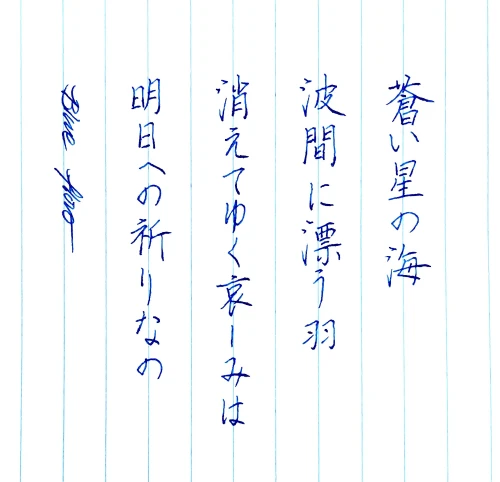 蒼い星の海
波間に漂う羽
消えてゆく哀しみは
明日への祈りなの
Blue